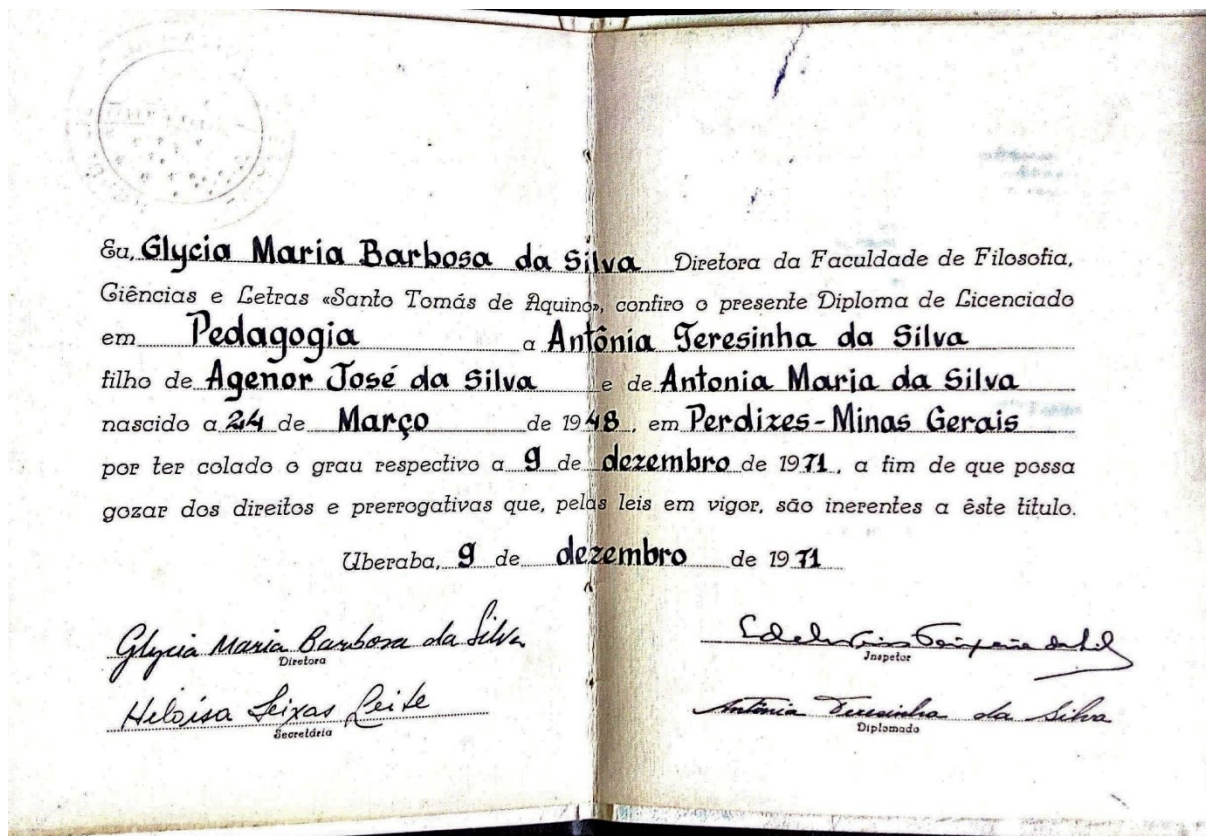 Eu, Glycia Maria Barbosa da Silva Diretora da Faculdade de Filosofia,
Ciências e Letras «Santo Tomás de Aquino», confiro o presente Diploma de Licenciado
em Pedagogia a Antônia Teresinha da Silva
filho de Agenor José da Silva e de Antonia Maria da Silva
nascido a 24 de Março de 1948, em Perdizes-Minas Gerais
por ter colado o grau respectivo a 9 de dezembro de 1971, a fim de que possa
gozar dos direitos e prerrogativas que, pelas leis em vigor, são inerentes a êste título.
Uberaba, 9 de dezembro de 1971
Glycia Maria Barbosa da Silva
Diretora
Inspetor
Heloisa Seixas Leite
Secretária
Antônia Teresinha da Silva
Diplomado